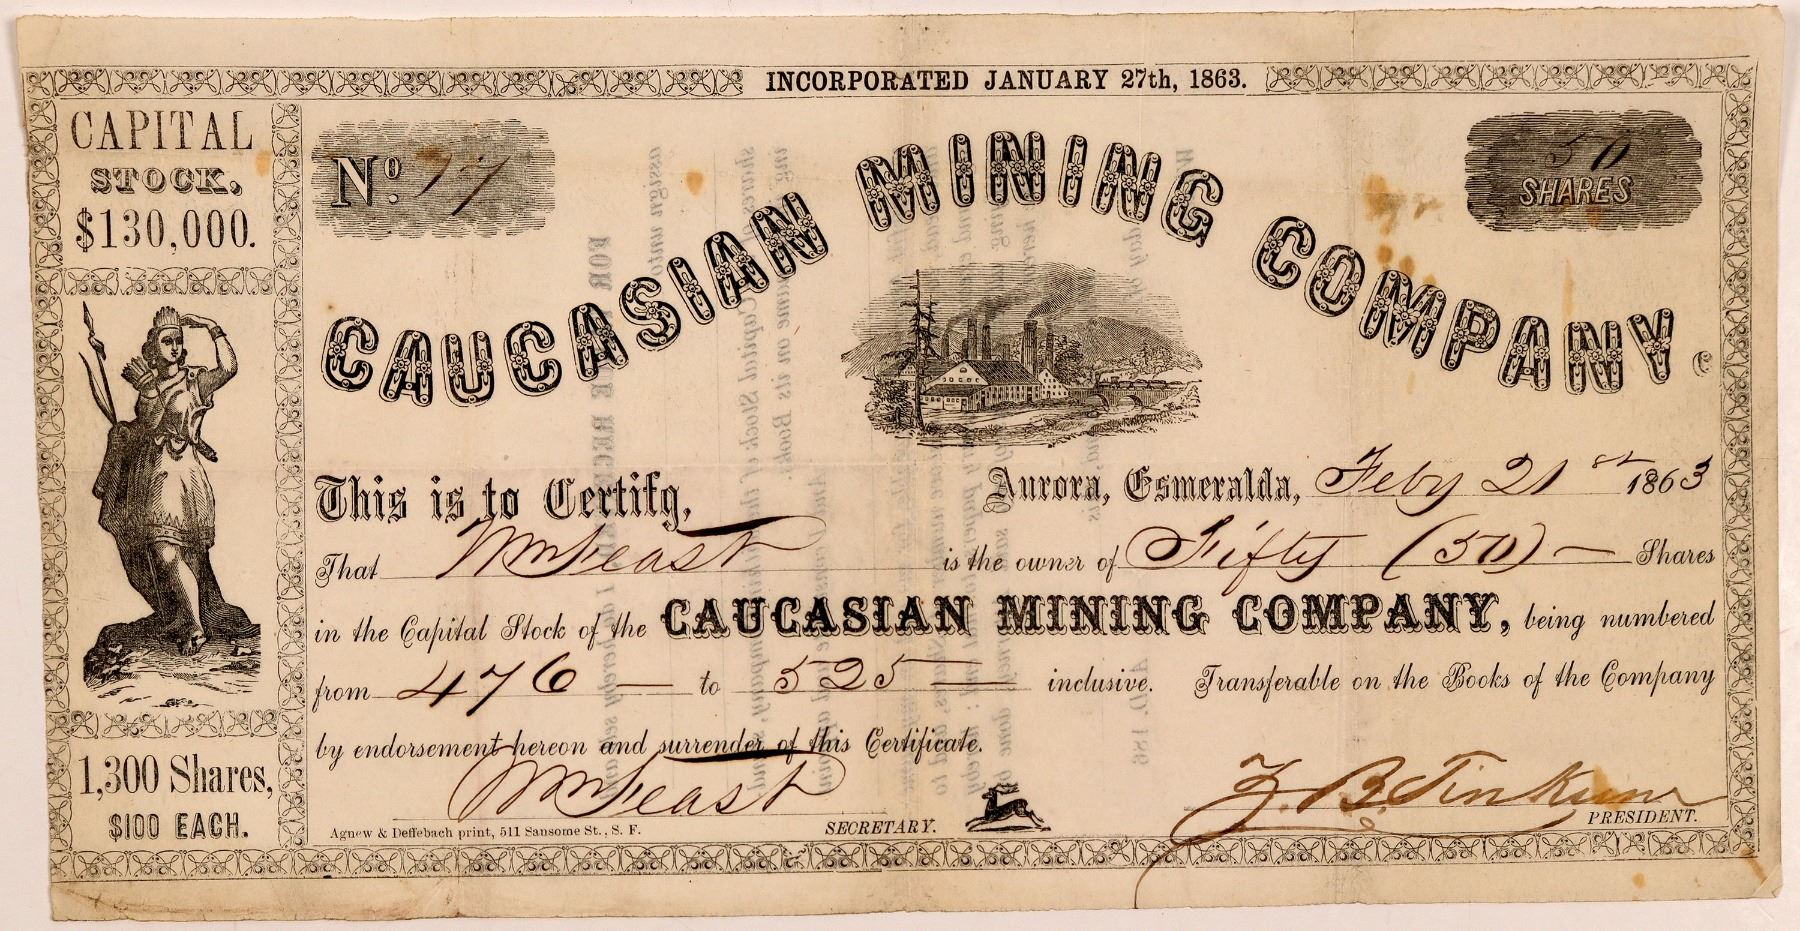 INCORPORATED JANUARY 27th, 1863.
CAPITAL
STOCK.
$130,000.
No. 77
50
SHARES
CAUCASIAN MINING COMPANY.
This is to Certify,
Aurora, Esmeralda, Feby 21st 1863
That Wm Feast is the owner of Fifty (50) — Shares
in the Capital Stock of the CAUCASIAN MINING COMPANY, being numbered
from 476 — to 525 — inclusive. Transferable on the Books of the Company
by endorsement hereon and surrender of this Certificate.
1,300 Shares,
$100 EACH.
Wm Feast
SECRETARY.
B. Tinkum
PRESIDENT.
Agnew & Deffebach print, 511 Sansome St., S. F.